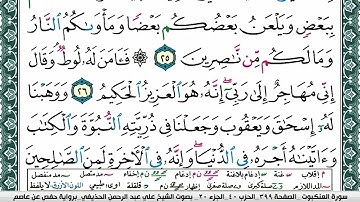 بِبَعْضٍ وَيَلْعَنُ بَعْضُكُم بَعْضًا وَمَأْوَىٰكُمُ ٱلنَّارُ
وَمَا لَكُم مِّن نَّٰصِرِينَ ۝٢٥ فَـَٔامَنَ لَهُۥ لُوطٌ ۘ وَقَالَ
إِنِّى مُهَاجِرٌ إِلَىٰ رَبِّىٓ ۖ إِنَّهُۥ هُوَ ٱلْعَزِيزُ ٱلْحَكِيمُ ۝٢٦ وَوَهَبْنَا
لَهُۥٓ إِسْحَٰقَ وَيَعْقُوبَ وَجَعَلْنَا فِى ذُرِّيَّتِهِ ٱلنُّبُوَّةَ وَٱلْكِتَٰبَ
وَءَاتَيْنَٰهُ أَجْرَهُۥ فِى ٱلدُّنْيَا ۖ وَإِنَّهُۥ فِى ٱلْـَٔاخِرَةِ لَمِنَ ٱلصَّٰلِحِينَ
سورة العنكبوت الصفحة ٣٩٩ الجزء ٤٠ الجزء ٢٠ بصوت الشيخ علي عبد الرحمن الحذيفي برواية حفص عن عاصم